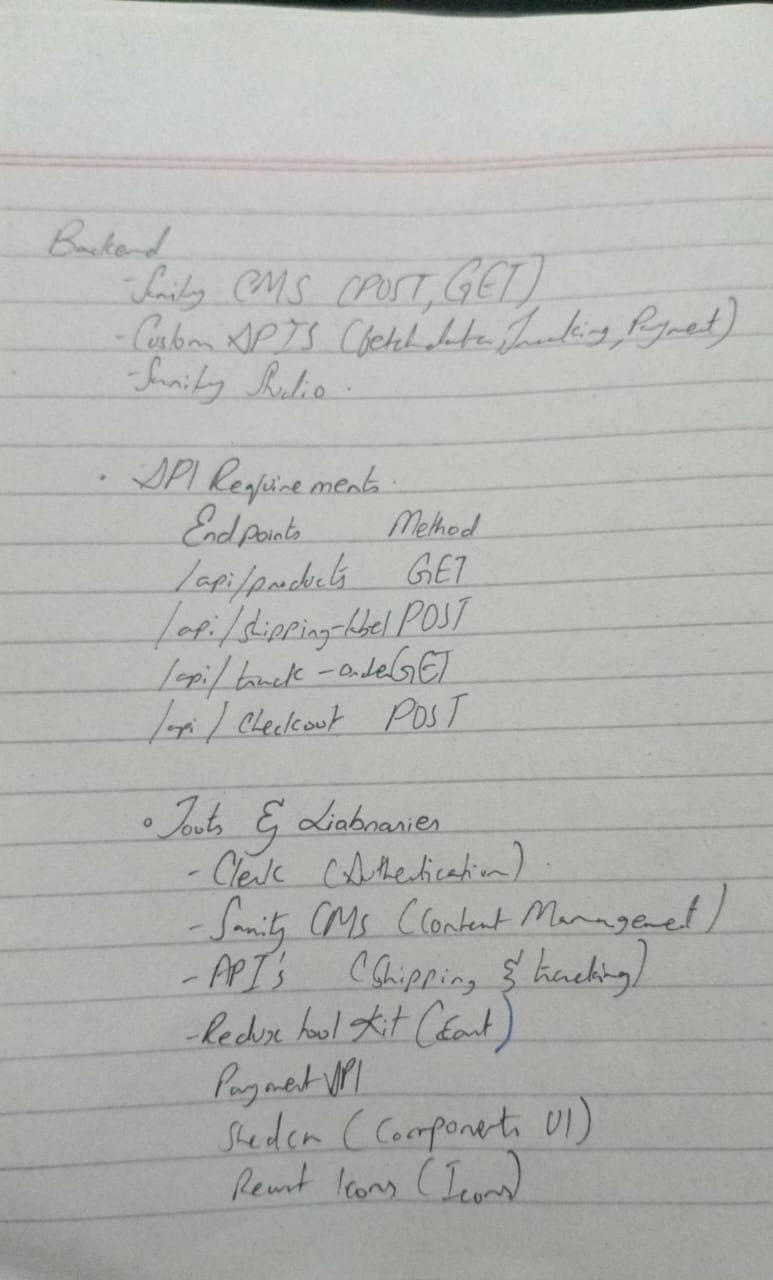 Backend
- Sanity CMS (POST, GET)
- Custom APIS (fetch data, Tracking, Paymet)
- Sanity Studio .
· API Requirements .
Endpoints Method
/api/products GET
/api/shipping-label POST
/api/track-order GET
/api/checkout POST
° Tools & Liabraries
- Clerk (Authentication) .
- Sanity CMS (Content Managemet)
- API's (Shipping & tracking)
- Redux tool kit (Cart)
Payment API
Shedcn (Components UI)
Reant Icons (Icons)